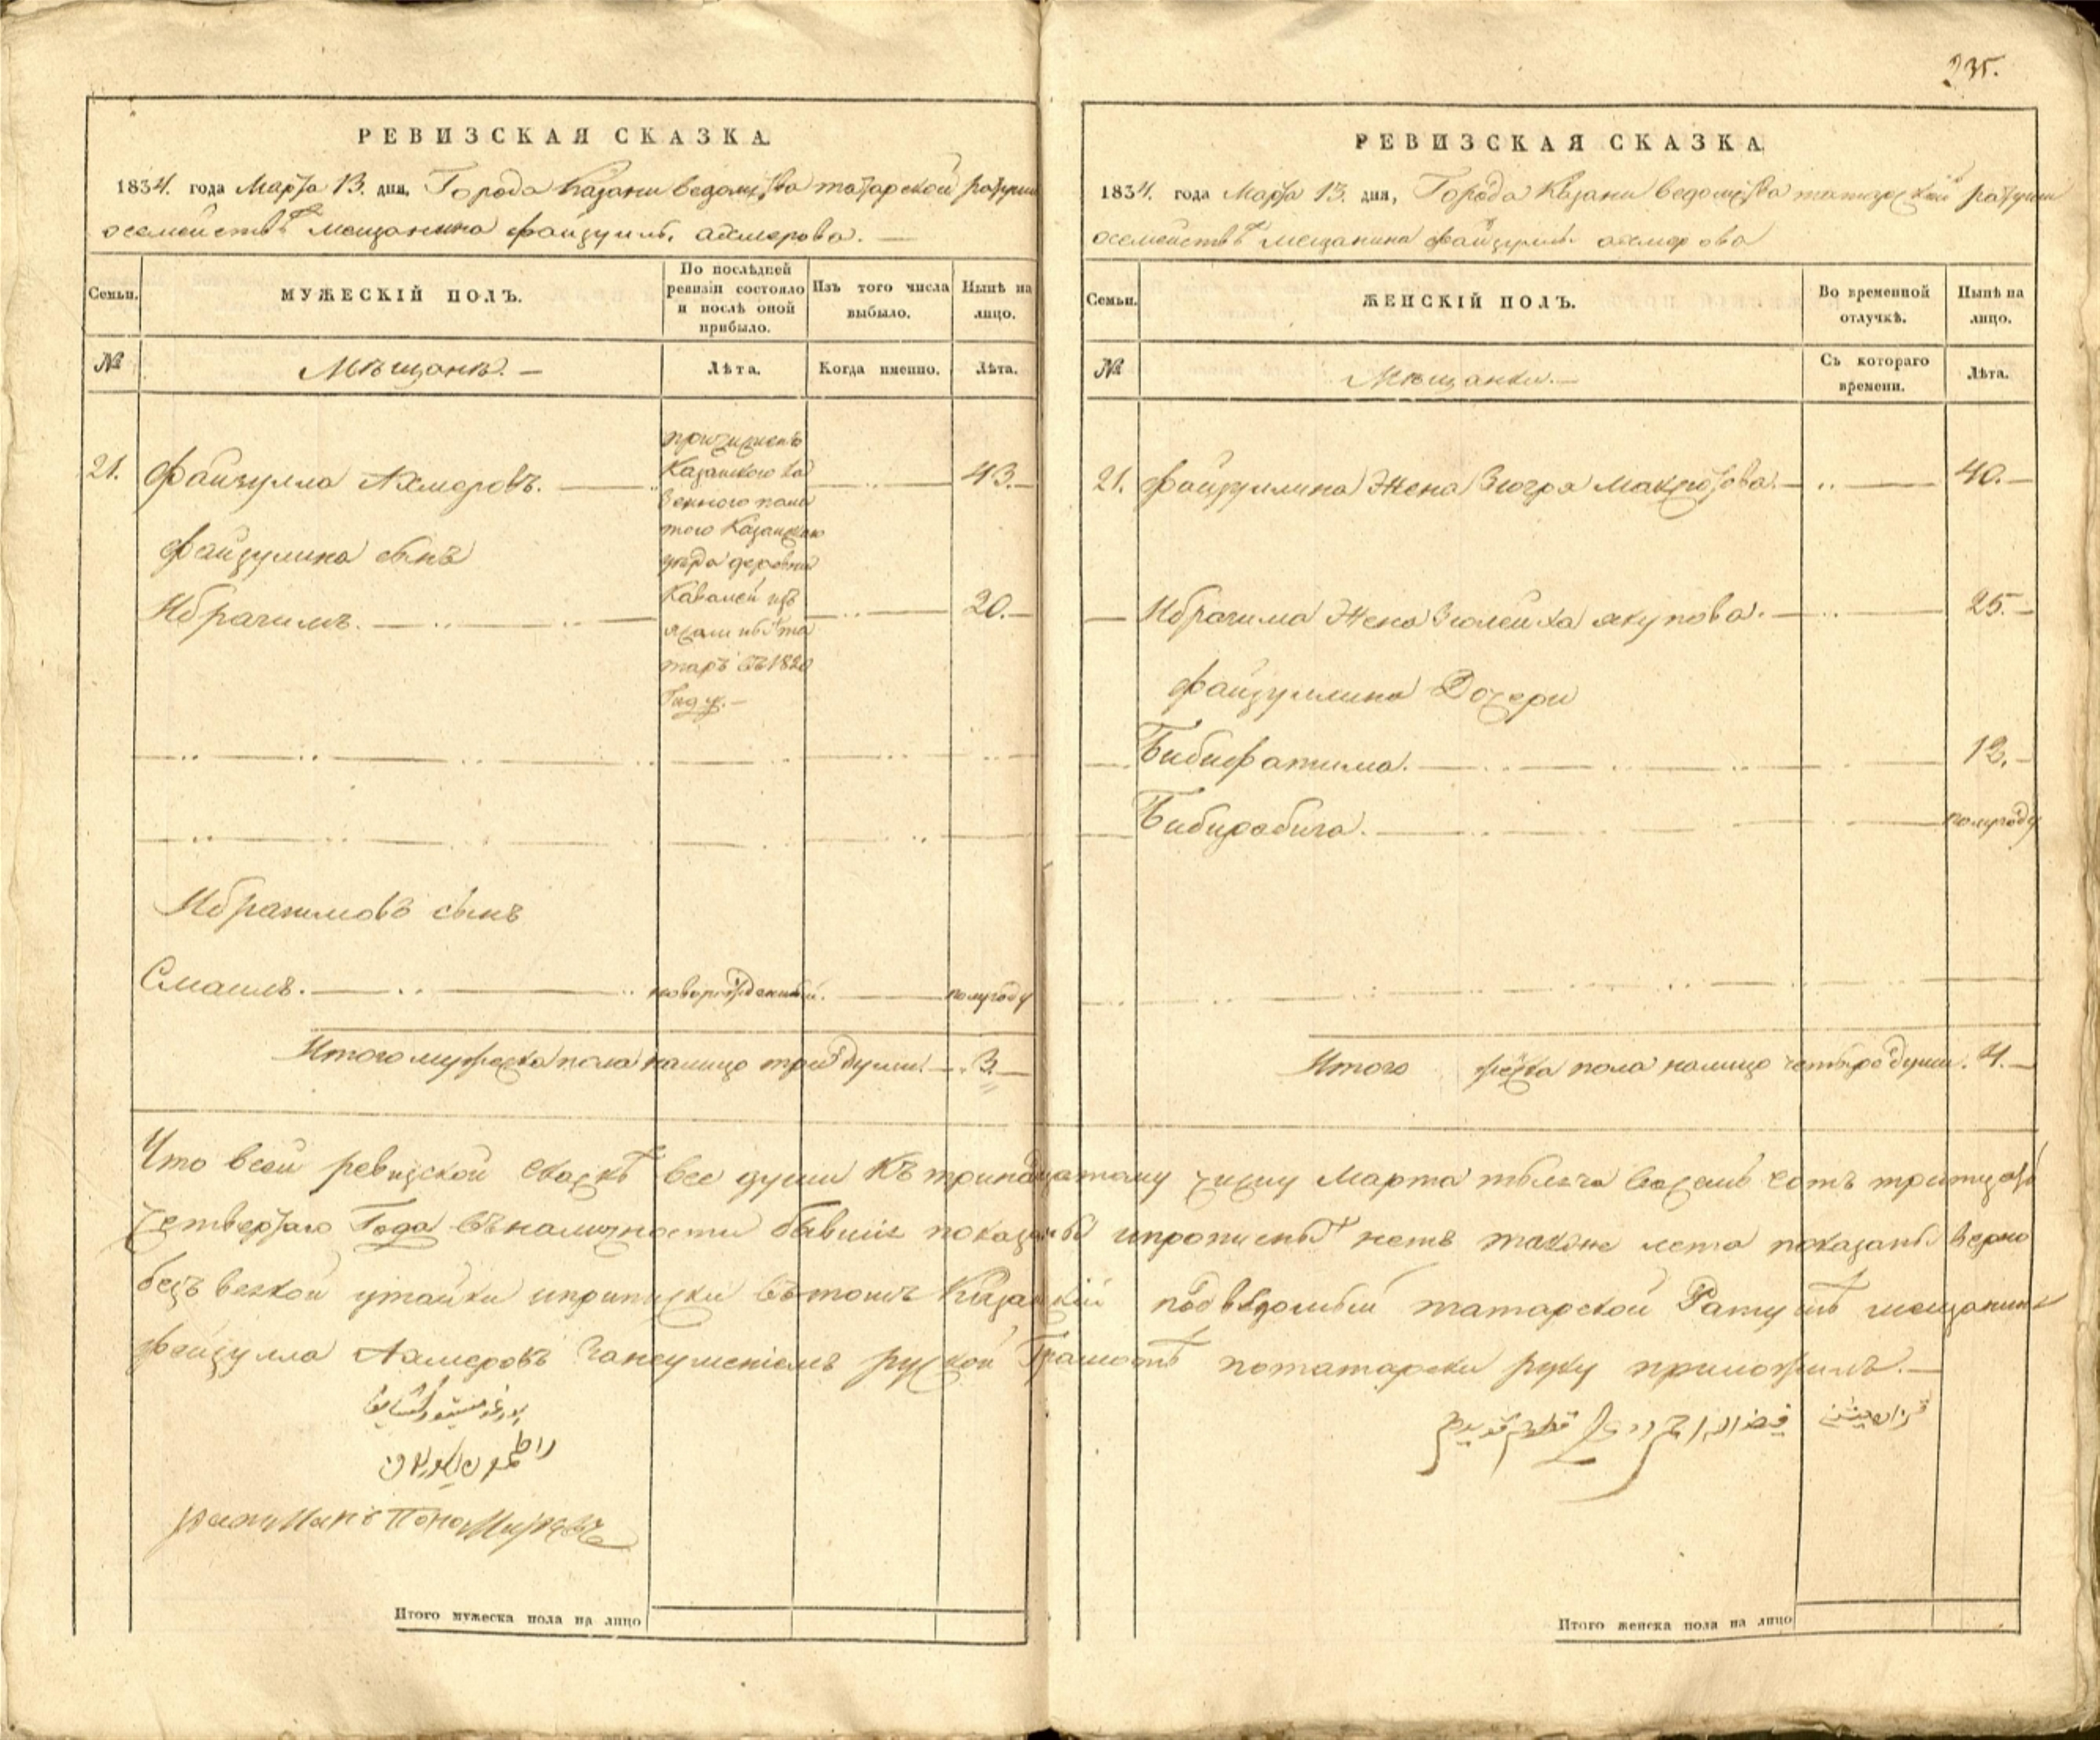 235.
РЕВИЗСКАЯ СКАЗКА
1834. года Марта 13. дня, Города Казани ведомства татарской ратуши
осемействѣ мещанина файзуллы ахмерова. —
Семьи.
МУЖЕСКІЙ ПОЛЪ.
По послѣдней ревизіи состояло и послѣ оной прибыло.
Изъ того числа выбыло.
Нынѣ на лицо.
№
Мѣщанѣ. —
Лѣта.
Когда именно.
Лѣта.
21. Файзулла Ахмеровъ. — 43. —
причисленъ
Казанского
того Казанского
уезда деревни
Кавалей изъ
ясашныхъ та
таръ въ 1820
Году. —
файзулина сынъ
Ибрагимъ. — 20. —
Ибрагимовъ сынъ
Смаилъ. — новорожденный. — полугоду
Итого мужеска пола налицо три души. — 3. —
РЕВИЗСКАЯ СКАЗКА
1834. года Марта 13. дня, Города Казани ведомства татарской ратуши
осемействѣ мещанина файзуллы ахмерова
Семьи.
ЖЕНСКІЙ ПОЛЪ.
Во временной отлучкѣ.
Нынѣ на лицо.
№
Мѣщанки. —
Съ котораго времени.
Лѣта.
21. файзуллина Жена Зюгря Максютова. — 40. —
Ибрагима Жена Зюлейха якупова. — 25. —
файзуллина Дочери
Бибифатима. — 12. —
Бибирабига. — полугоду
Итого женска пола налицо четыре души. 4. —
Что всей ревизской скаскѣ все души къ тринадцатому числу Марта тысяча восемь сотъ тритцать
четвертаго Года въналичности бывшіе показаны ипрописныхъ нетъ также лета показаны верно
безъ всякой утайки иприписки вътомъ Казанскій подвѣдомый татарской Ратушѣ мещанинъ
Файзулла Ахмеровъ занеуменіемъ руской Грамотѣ потатарски руку приложилъ. —
Ратманъ
Итого мужеска пола на лицо
Итого женска пола на лицо